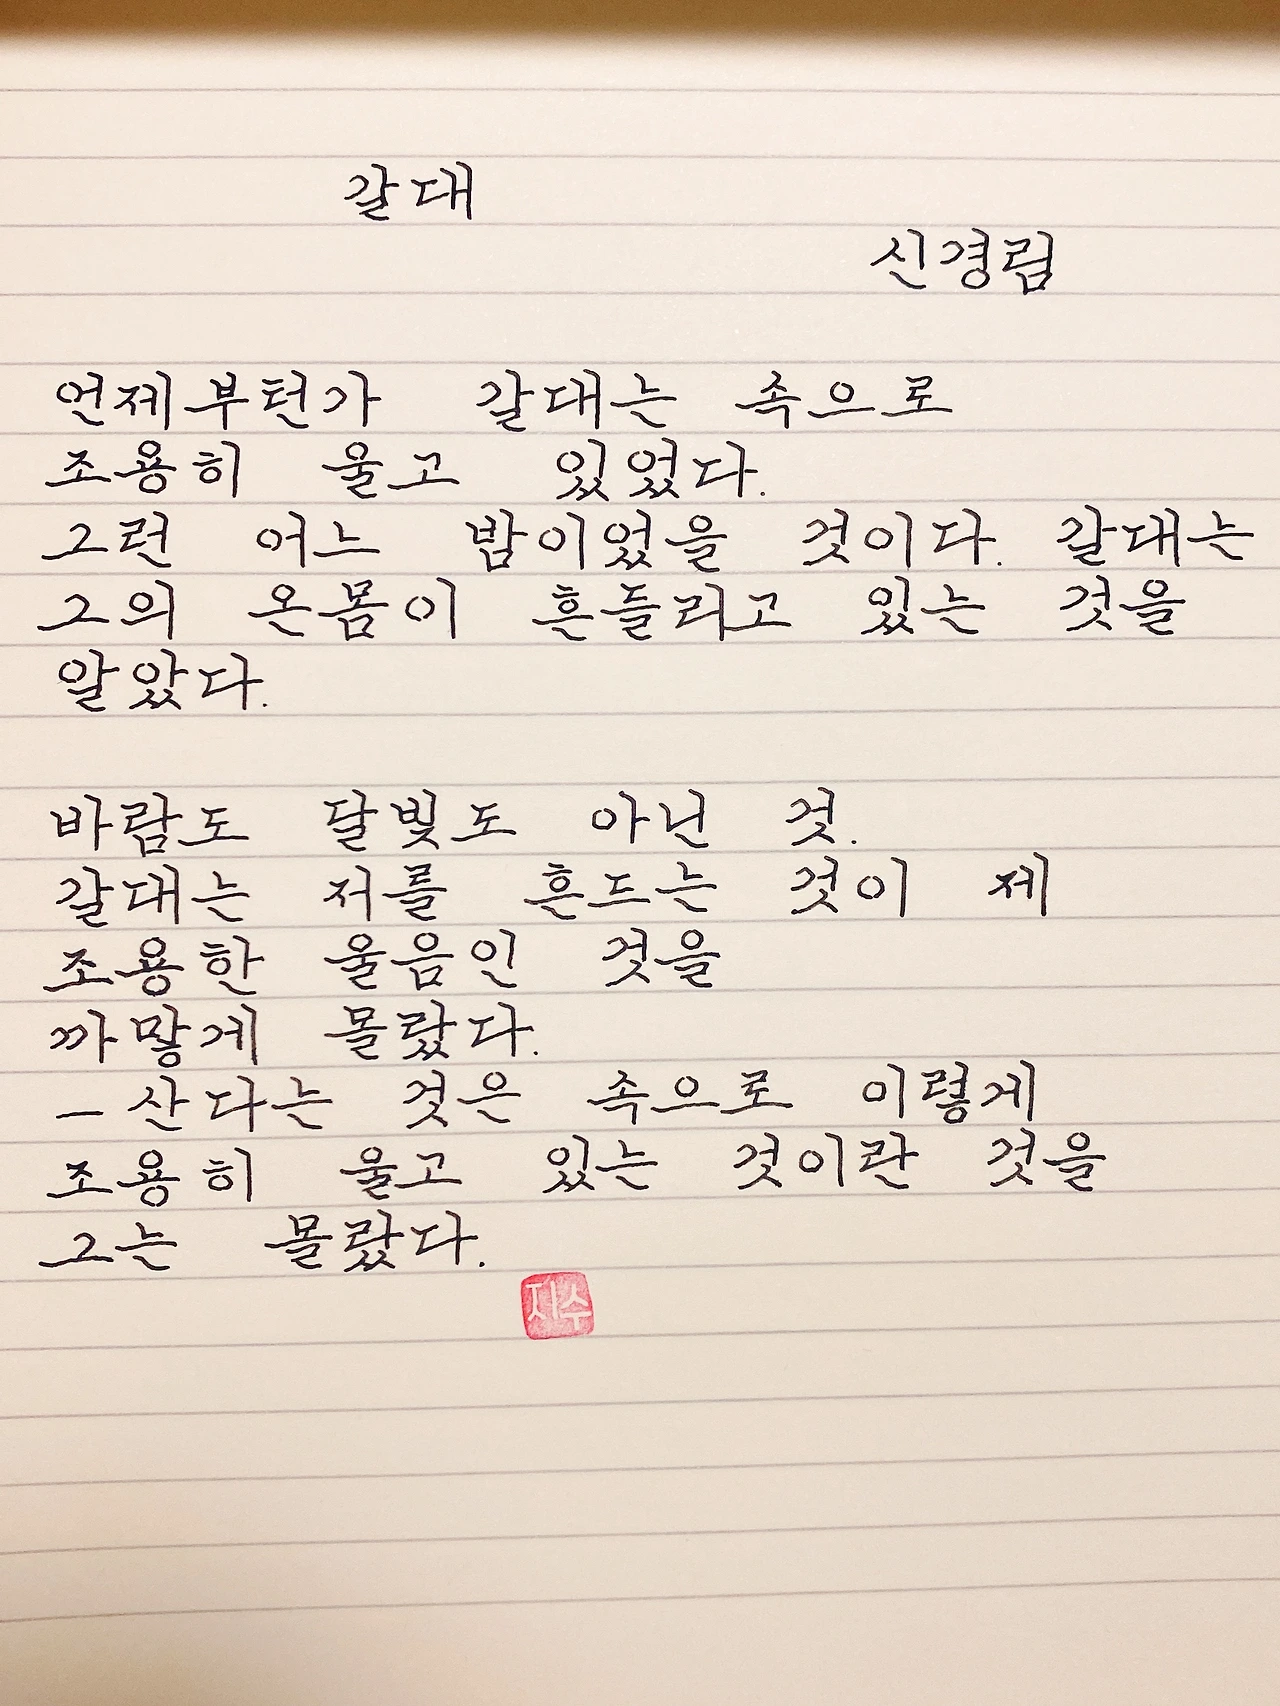 갈대
신경림
언제부턴가 갈대는 속으로
조용히 울고 있었다.
그런 어느 밤이었을 것이다. 갈대는
그의 온몸이 흔들리고 있는 것을
알았다.
바람도 달빛도 아닌 것.
갈대는 저를 흔드는 것이 제
조용한 울음인 것을
까맣게 몰랐다.
- 산다는 것은 속으로 이렇게
조용히 울고 있는 것이란 것을
그는 몰랐다.
지수